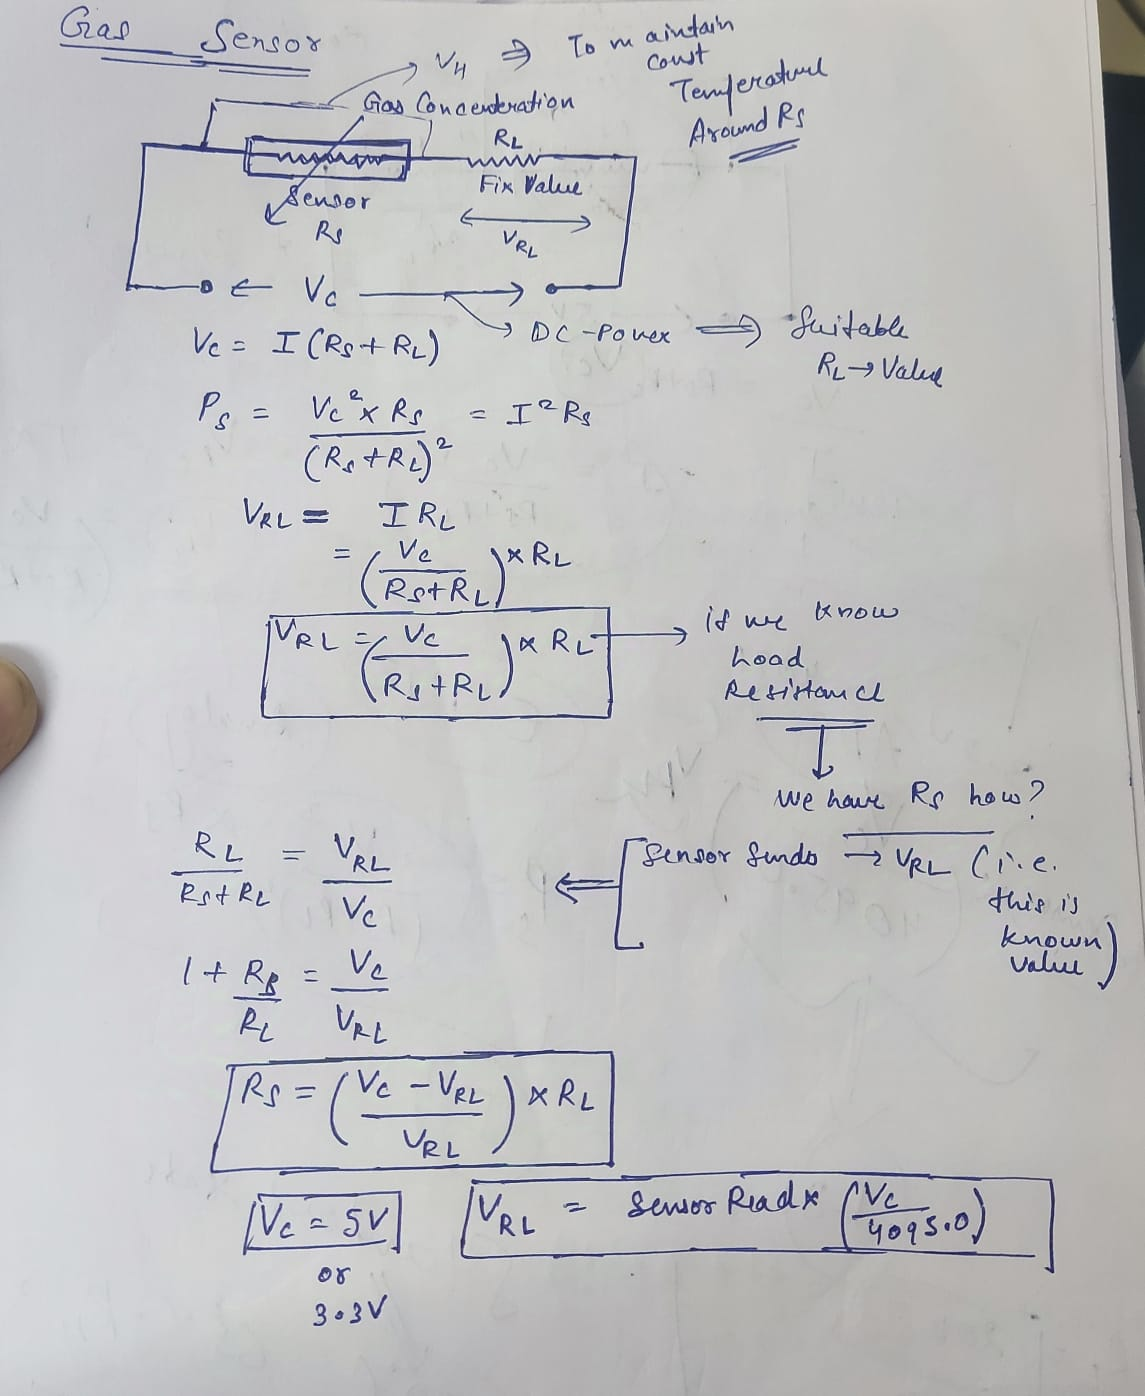 Gas Sensor
VH ⇒ To maintain
const
Temperature
Around Rs
Gas Concenteration
RL
Fix Value
Sensor
Rs
VRL
← Vc →
DC-Power ⇒ Suitable
RL → Value
Vc = I (Rs + RL)
Ps = Vc² x Rs / (Rs + RL)² = I² Rs
VRL = I RL
= (Vc / Rs+RL) x RL
VRL = (Vc / Rs+RL) x RL → if we know
Load
Resistance
↓
We have Rs how?
[Sensor Sends → VRL (i.e.
this is
known
value)
RL / Rs+RL = VRL / Vc
1 + Rs / RL = Vc / VRL
Rs = (Vc - VRL / VRL) x RL
Vc = 5V
or
3.3V
VRL = Sensor Read x (Vc / 4095.0)